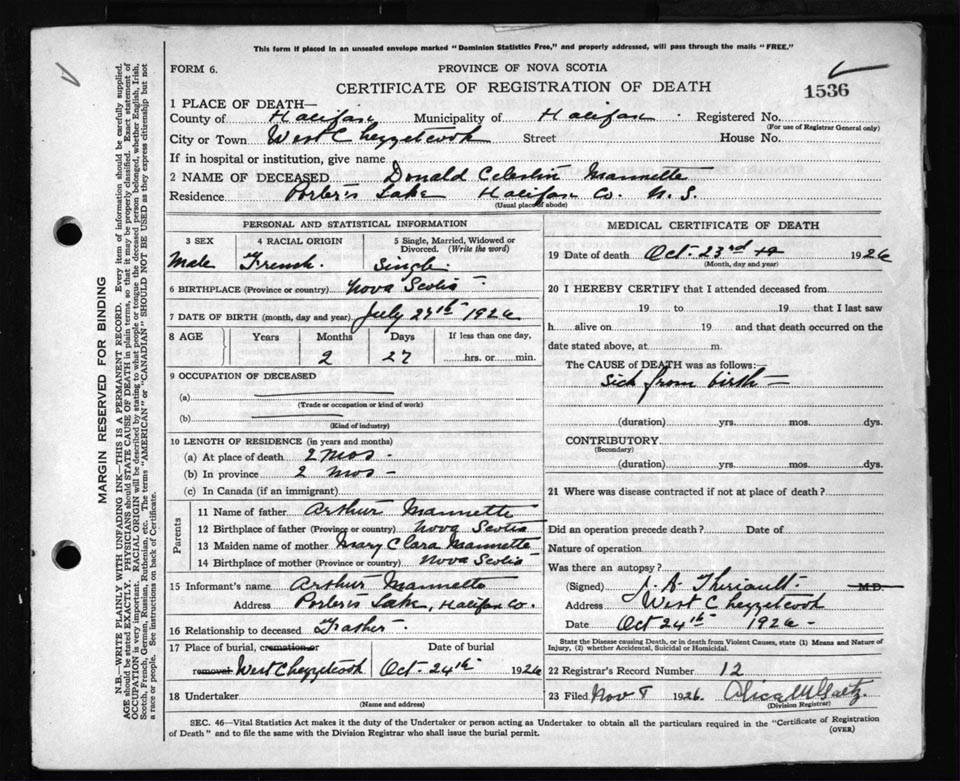 This form if placed in an unsealed envelope marked "Dominion Statistics Free," and properly addressed, will pass through the mails "FREE."
FORM 6.
PROVINCE OF NOVA SCOTIA
CERTIFICATE OF REGISTRATION OF DEATH
1536
1 PLACE OF DEATH—
County of Halifax Municipality of Halifax Registered No.
(For use of Registrar General only)
City or Town West Chezzetcook Street House No.
If in hospital or institution, give name
2 NAME OF DECEASED Donald Celestin Mannette
Residence Porter's Lake Halifax Co. N.S.
(Usual place of abode)
PERSONAL AND STATISTICAL INFORMATION
3 SEX 4 RACIAL ORIGIN 5 Single, Married, Widowed or Divorced. (Write the word)
Male French. Single
6 BIRTHPLACE (Province or country) Nova Scotia
7 DATE OF BIRTH (month, day and year) July 27th 1926
8 AGE Years Months Days If less than one day,
2 27 hrs. or min.
9 OCCUPATION OF DECEASED
(a)
(Trade or occupation or kind of work)
(b)
(Kind of industry)
10 LENGTH OF RESIDENCE (in years and months)
(a) At place of death 2 mos.
(b) In province 2 mos
(c) In Canada (if an immigrant)
Parents
11 Name of father Arthur Mannette
12 Birthplace of father (Province or country) Nova Scotia
13 Maiden name of mother Mary Clara Mannette
14 Birthplace of mother (Province or country) Nova Scotia
15 Informant's name Arthur Mannette
Address Porter's Lake, Halifax Co.
16 Relationship to deceased Father
17 Place of burial, cremation or removal Date of burial
West Chezzetcook Oct-24th 1926
18 Undertaker
(Name and address)
MEDICAL CERTIFICATE OF DEATH
19 Date of death Oct. 23rd 1926
(Month, day and year)
20 I HEREBY CERTIFY that I attended deceased from
19 to 19 that I last saw
h alive on 19 and that death occurred on the
date stated above, at m.
The CAUSE of DEATH was as follows:
Sick from birth—
(duration) yrs. mos. dys.
CONTRIBUTORY
(Secondary)
(duration) yrs. mos. dys.
21 Where was disease contracted if not at place of death?
Did an operation precede death? Date of
Nature of operation
Was there an autopsy?
(Signed) J. A. Theriault M.D.
Address West Chezzetcook
Date Oct 24th 1926
State the Disease causing Death, or in death from Violent Causes, state (1) Means and Nature of
Injury, (2) whether Accidental, Suicidal or Homicidal.
22 Registrar's Record Number 12
23 Filed Nov 8 1926 Alice M Gaetz
(Division Registrar)
SEC. 46—Vital Statistics Act makes it the duty of the Undertaker or person acting as Undertaker to obtain all the particulars required in the "Certificate of Registration
of Death" and to file the same with the Division Registrar who shall issue the burial permit.
(OVER)
MARGIN RESERVED FOR BINDING
N.B.—WRITE PLAINLY WITH UNFADING INK—THIS IS A PERMANENT RECORD. Every item of information should be carefully supplied.
AGE should be stated EXACTLY. PHYSICIANS should STATE CAUSE OF DEATH in plain terms, so that it may be properly classified. Exact statement of
OCCUPATION is very important. RACIAL ORIGIN will be described by stating to what people or tongue the deceased person belonged, whether English, Irish,
Scotch, French, German, Russian, Ruthenian, etc. The terms "AMERICAN" or "CANADIAN" SHOULD NOT BE USED as they express citizenship but not
a race or people. See instructions on back of Certificate.